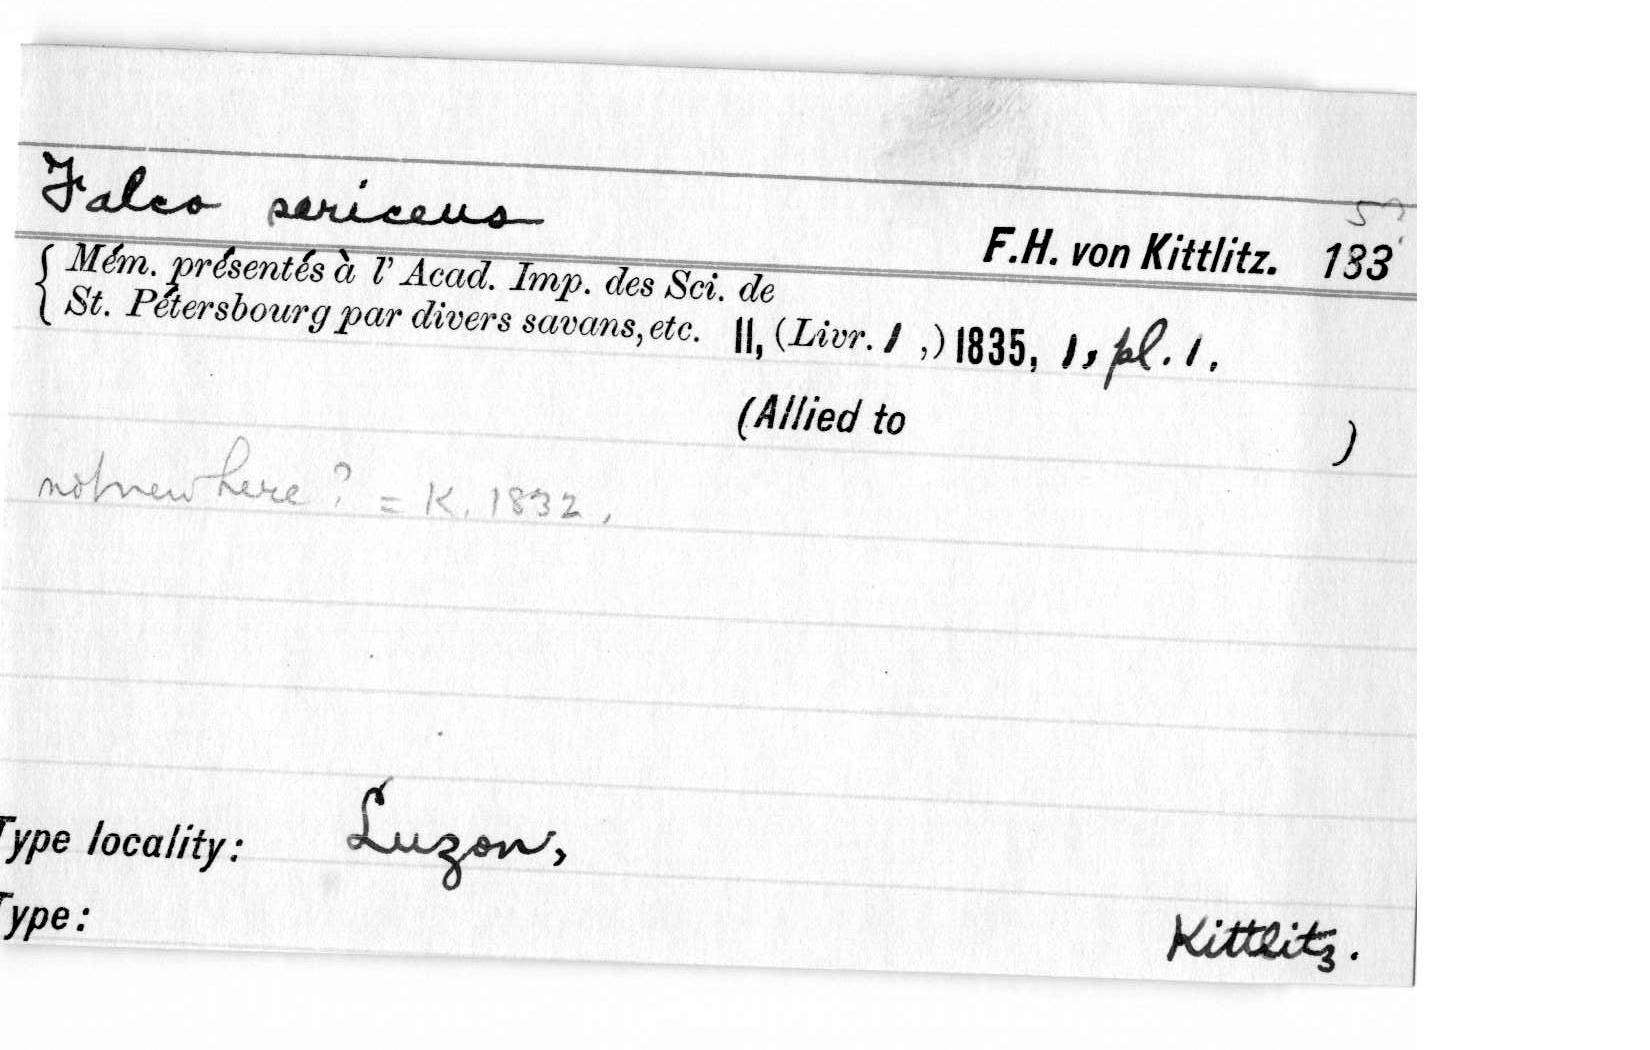 Falco sericeus
F.H. von Kittlitz. 183
{ Mém. présentés à l' Acad. Imp. des Sci. de
St. Pétersbourg par divers savans, etc. II, (Livr. 1 ,) 1835, 1, pl. 1.
(Allied to )
not new here? = K. 1832,
Type locality: Luzon,
Type: Kittlitz.